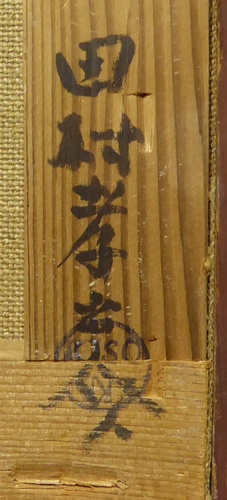 田村孝之介
KISO